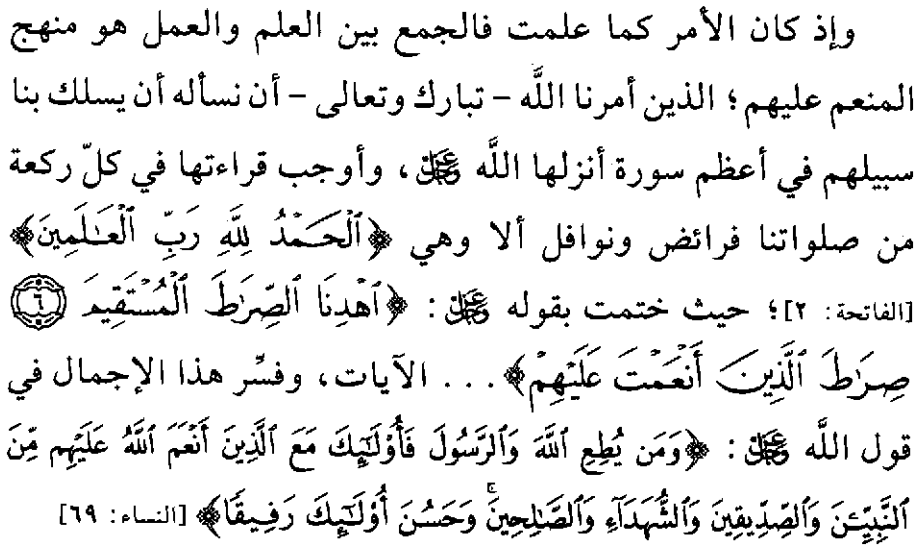 وإذ كان الأمر كما علمت فالجمع بين العلم والعمل هو منهج
المنعم عليهم؛ الذين أمرنا اللَّه – تبارك وتعالى – أن نسأله أن يسلك بنا
سبيلهم في أعظم سورة أنزلها اللَّه عَزَّوَجَلَّ، وأوجب قراءتها في كلّ ركعة
من صلواتنا فرائض ونوافل ألا وهي ﴿ٱلْحَمْدُ لِلَّهِ رَبِّ ٱلْعَـٰلَمِينَ﴾
[الفاتحة: ٢]؛ حيث ختمت بقوله عَزَّوَجَلَّ: ﴿ٱهْدِنَا ٱلصِّرَٰطَ ٱلْمُسْتَقِيمَ ۝٦
صِرَٰطَ ٱلَّذِينَ أَنْعَمْتَ عَلَيْهِمْ﴾... الآيات، وفسِّر هذا الإجمال في
قول اللَّه عَزَّوَجَلَّ: ﴿وَمَن يُطِعِ ٱللَّهَ وَٱلرَّسُولَ فَأُو۟لَـٰٓئِكَ مَعَ ٱلَّذِينَ أَنْعَمَ ٱللَّهُ عَلَيْهِم مِّنَ
ٱلنَّبِيِّـۧنَ وَٱلصِّدِّيقِينَ وَٱلشُّهَدَآءِ وَٱلصَّـٰلِحِينَ ۚ وَحَسُنَ أُو۟لَـٰٓئِكَ رَفِيقًا﴾ [النساء: ٦٩]